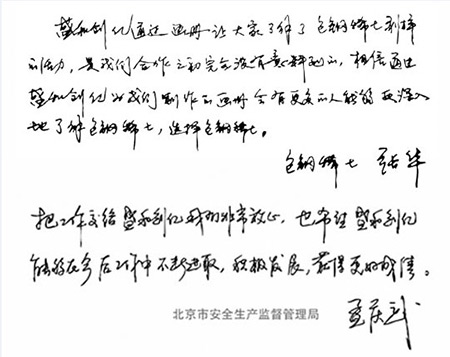 盛和创亿通过画册让大家了解了包钢稀土到底
的活力，是我们合作之初完全没有意料到的，相信通过
盛和创亿为我们制作的画册会有更多的人能够更深入
地了解包钢稀土，选择包钢稀土。
包钢稀土 华
把工作交给盛和创亿我们非常放心，也希望盛和创亿
能够在今后工作中不断进取，积极发展，获得更好成绩。
北京市安全生产监督管理局
孟庆武